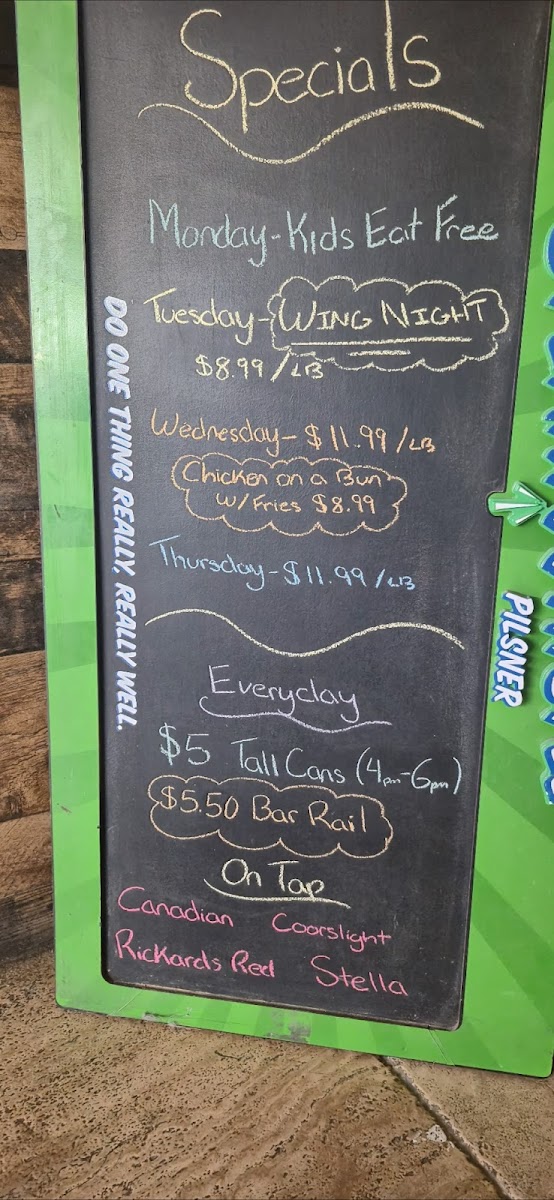 Specials
Monday - Kids Eat Free
Tuesday - WING NIGHT
$8.99 / LB
Wednesday - $11.99 / LB
Chicken on a Bun
w/ Fries $8.99
Thursday - $11.99 / LB
Everyday
$5 Tall Cans (4pm-6pm)
$5.50 Bar Rail
On Tap
Canadian Coorslight
Rickards Red Stella
DO ONE THING REALLY, REALLY WELL.
PILSNER